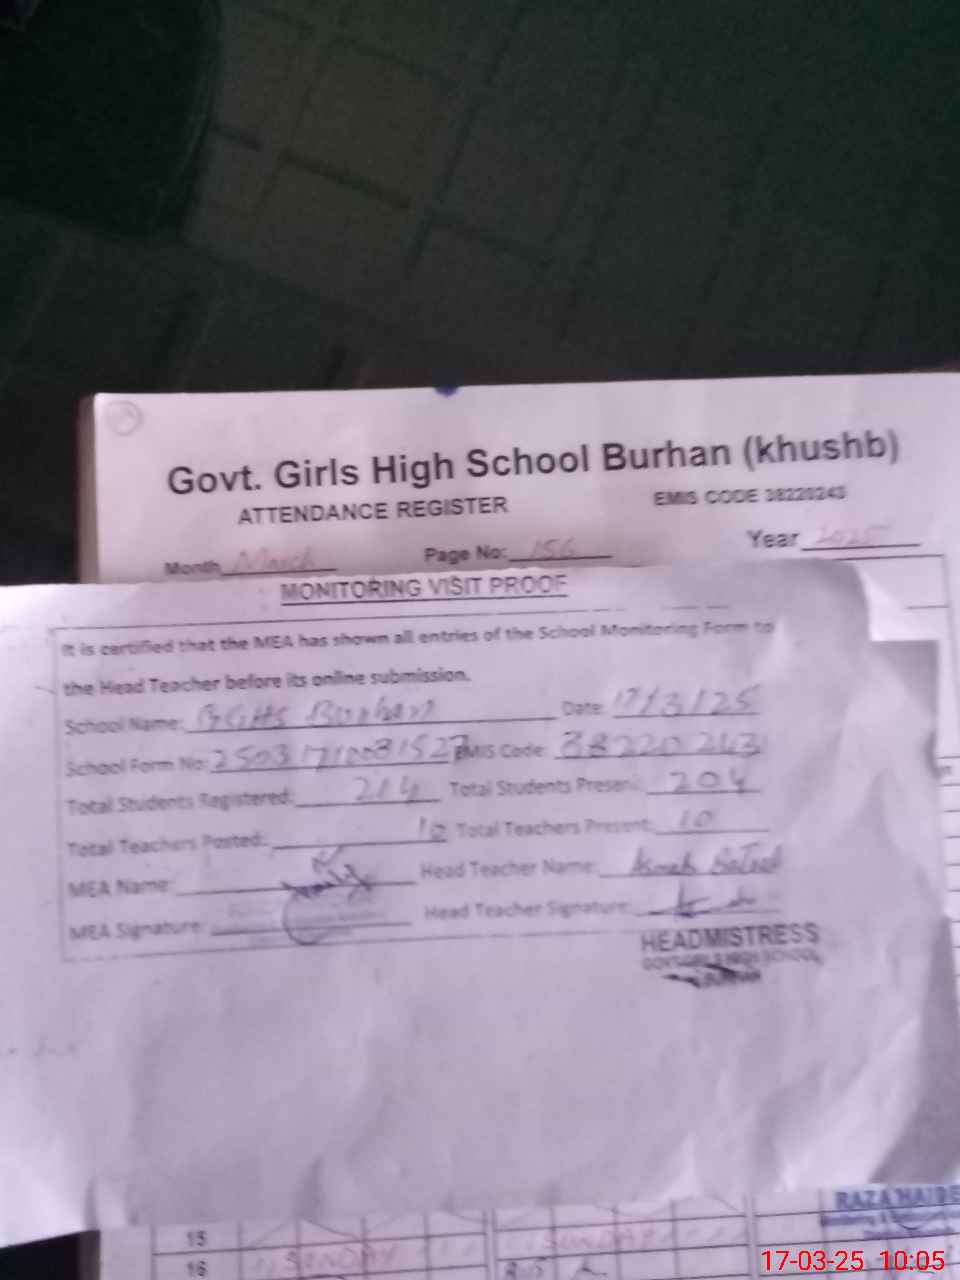 Govt. Girls High School Burhan (khushb)
ATTENDANCE REGISTER EMIS CODE 38220243
Month March Page No: 156 Year 2025
MONITORING VISIT PROOF
It is certified that the MEA has shown all entries of the School Monitoring Form to
the Head Teacher before its online submission.
School Name: GGHS Burhan Date: 17/3/25
School Form No: EMIS Code: 38220243
Total Students Registered: 214 Total Students Present: 204
Total Teachers Posted: 10 Total Teachers Present: 10
MEA Name: Head Teacher Name: Asmah Batool
MEA Signature: Head Teacher Signature:
HEADMISTRESS
GOVT GIRLS HIGH SCHOOL
BURHAN
RAZA HAIDE
15
16 SUNDAY SUNDAY
17-03-25 10:05